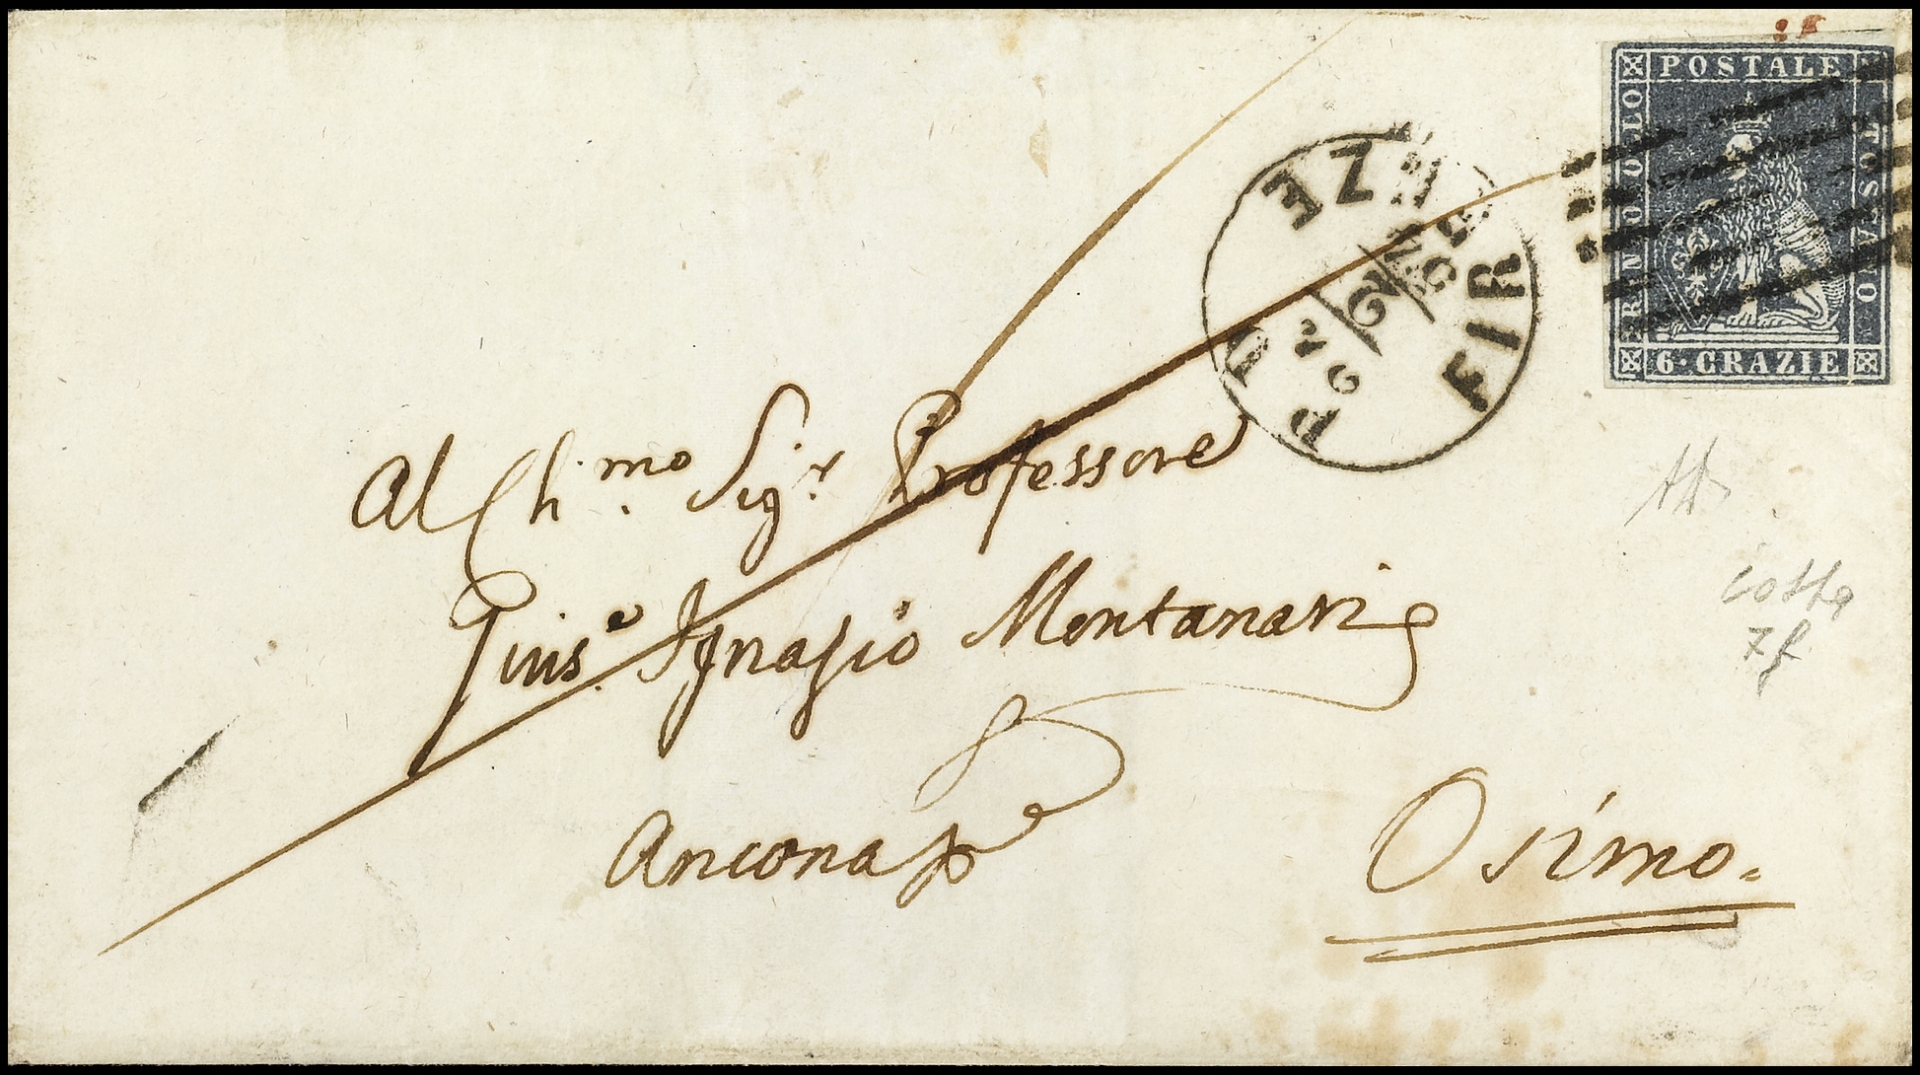 POSTALE
FRANCOBOLLO
TOSCANO
6·CRAZIE
FIRENZE
Al Ch.mo Sigr. Professore
Giuse. Ignazio Montanari
Ancona p
Osimo.
costa
7f